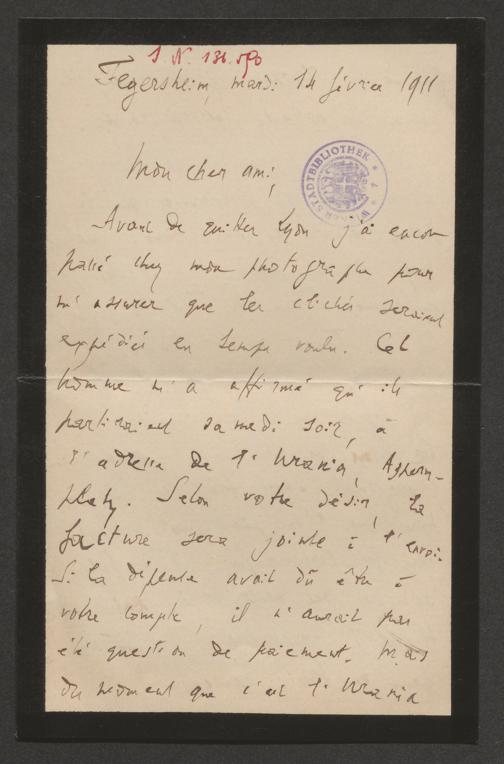 I. N. 136.590
Fegersheim, mardi 14 février 1911
WIENER STADTBIBLIOTHEK
Mon cher ami,
Avant de quitter Lyon j'ai encore
passé chez mon photographe pour
m'assurer que les clichés seraient
expédiés en temps voulu. Cet
homme m'a affirmé qu'ils
partiraient samedi soir, à
l'adresse de l'Urania, Aspern-
platz. Selon votre désir, la
facture sera jointe à l'envoi.
Si la dépense avait dû être à
votre compte, il n'aurait pas
été question de paiement. Mais
du moment que c'est l'Urania